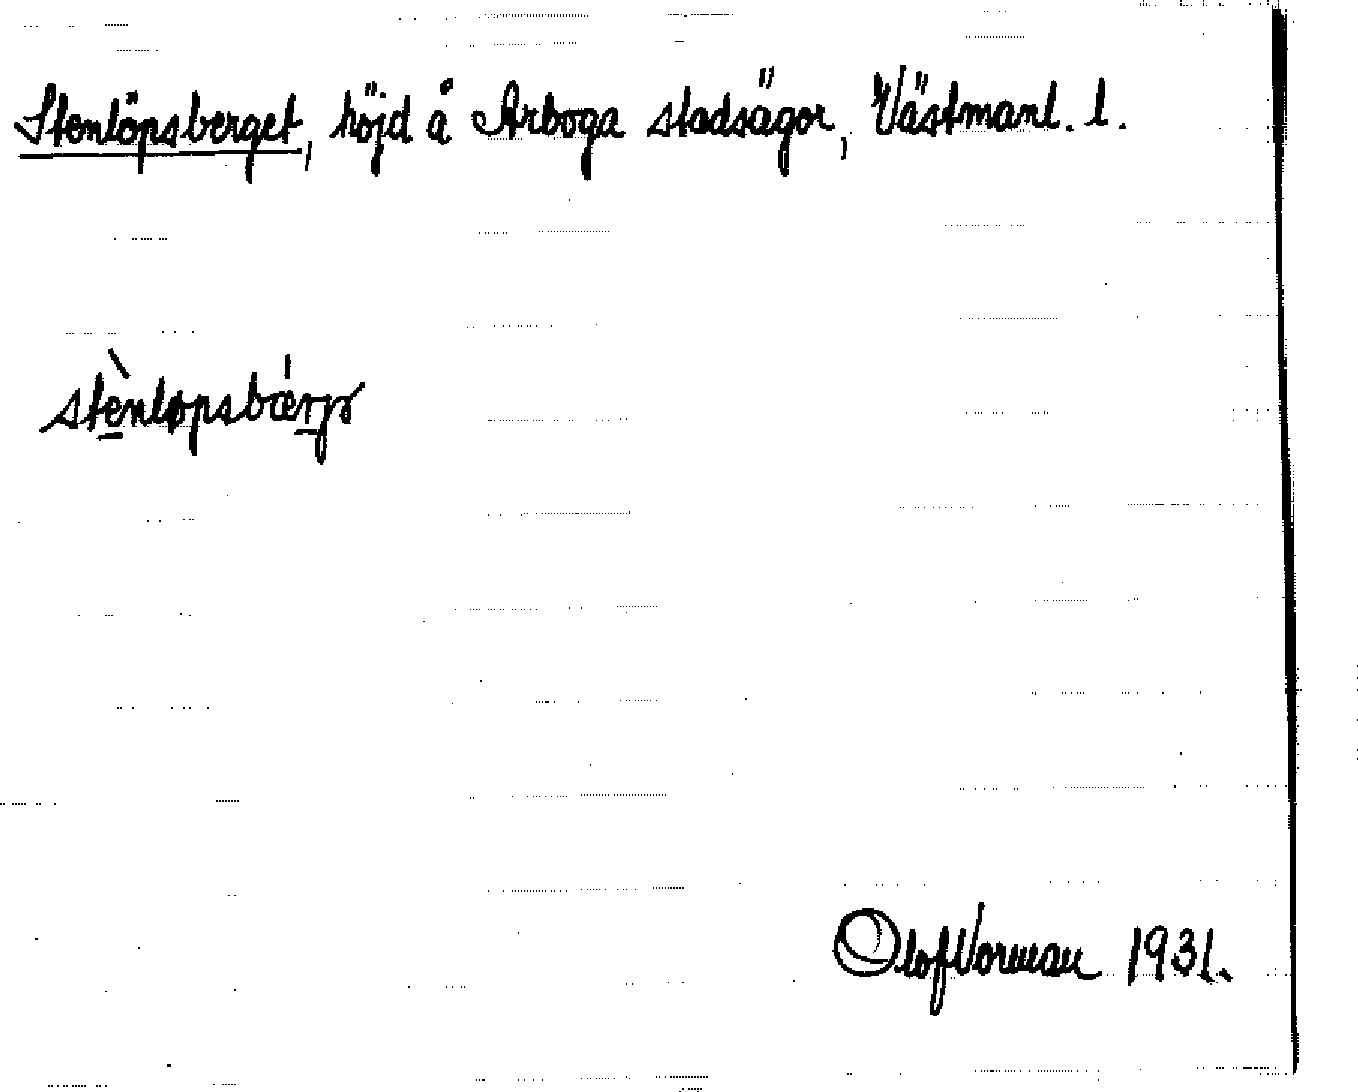 Stenlöpsberget, höjd å Arboga stadsägor, Västmanl. l.
Olof Vorman 1931.